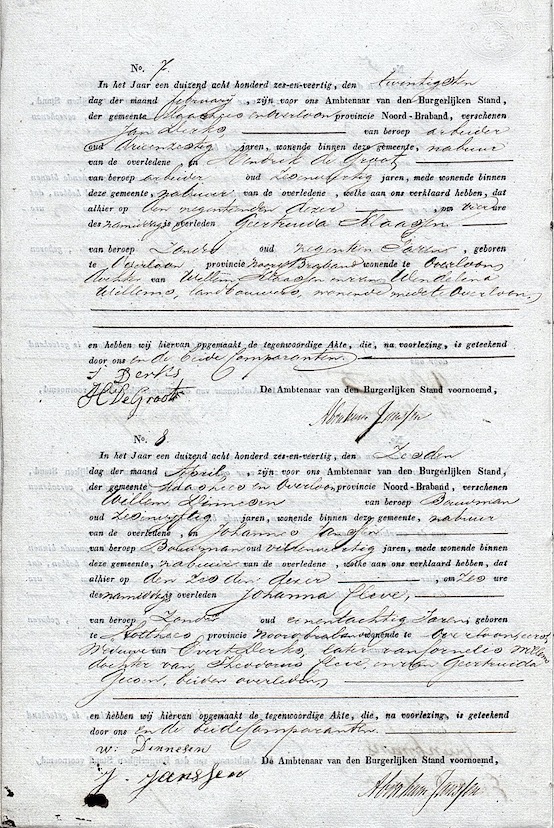 No. 7
In het Jaar een duizend acht honderd zes-en-veertig, den twintigsten
dag der maand february, zijn voor ons Ambtenaar van den Burgerlijken Stand,
der gemeente Maashees en Overloon provincie Noord-Braband, verschenen
Jan Derks van beroep arbeider
oud drieenzestig jaren, wonende binnen deze gemeente, nabuur
van de overledene, en Hendrik de Groot
van beroep arbeider oud jaren, mede wonende binnen
deze gemeente, nabuur van de overledene, welke aan ons verklaard hebben, dat
alhier op den negentienden dezer, om vier ure
des namiddags is overleden Geertruida Klaassen
van beroep Zonder oud negentien Jaren, geboren
te Overloon provincie Noord Braband wonende te Overloon,
dochter van Willem Klaassen en van Wendelena
Willems, landbouwers, wonende mede te Overloon,
en hebben wij hiervan opgemaakt de tegenwoordige Akte, die, na voorlezing, is geteekend
door ons en de beide Comparanten.
J Derks
H De Groot
De Ambtenaar van den Burgerlijken Stand voornoemd,
Abraham Janssen
No. 8
In het Jaar een duizend acht honderd zes-en-veertig, den Zesden
dag der maand April, zijn voor ons Ambtenaar van den Burgerlijken Stand,
der gemeente Maashees en Overloon provincie Noord-Braband, verschenen
Willem Dinnesen van beroep Bouwman
oud jaren, wonende binnen deze gemeente, nabuur
van de overledene, en Johannes Jansen
van beroep Bouwman oud jaren, mede wonende binnen
deze gemeente, nabuur van de overledene, welke aan ons verklaard hebben, dat
alhier op den zesden dezer, om zes ure
des namiddags is overleden Johanna Cleve,
van beroep Zonder oud eenentachtig Jaren, geboren
te Holthees provincie Noordbraband wonende te Overloon, eerst
Weduwe van Evert Derks, later van Cornelis Willems
dochter van Theodorus Cleve, en van Geertruida
beiden overleden,
en hebben wij hiervan opgemaakt de tegenwoordige Akte, die, na voorlezing, is geteekend
door ons en de beide Comparanten.
w: Dennesen
J. Janssen
De Ambtenaar van den Burgerlijken Stand voornoemd,
Abraham Janssen